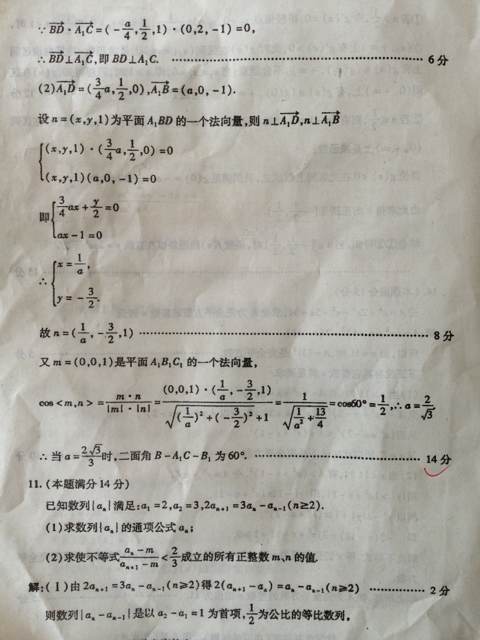 ∵ BD→ · A₁C→ = (-a/4, 1/2, 1) · (0, 2, -1) = 0,
∴ BD→ ⊥ A₁C→, 即 BD⊥A₁C. …… 6 分
(2) A₁D→ = (3/4 a, 1/2, 0), A₁B→ = (a, 0, -1).
设 n = (x, y, 1) 为平面 A₁BD 的一个法向量, 则 n⊥A₁D→, n⊥A₁B→
{(x, y, 1) · (3/4 a, 1/2, 0) = 0
(x, y, 1)(a, 0, -1) = 0
即{3/4 ax + y/2 = 0
ax - 1 = 0
∴{x = 1/a,
y = -3/2.
故 n = (1/a, -3/2, 1) …… 8 分
又 m = (0, 0, 1) 是平面 A₁B₁C₁ 的一个法向量,
cos<m, n> = m·n/(|m|·|n|) = (0,0,1)·(1/a, -3/2, 1)/√((1/a)² + (-3/2)² + 1) = 1/√(1/a² + 13/4) = cos60° = 1/2, ∴ a = 2/√3.
∴ 当 a = 2√3/3 时, 二面角 B-A₁C-B₁ 为 60°. …… 14 分
11. (本题满分 14 分)
已知数列{aₙ}满足: a₁ = 2, a₂ = 3, 2aₙ₊₁ = 3aₙ - aₙ₋₁ (n≥2).
(1) 求数列{aₙ}的通项公式 aₙ;
(2) 求使不等式 (aₙ - m)/(aₙ₊₁ - m) < 2/3 成立的所有正整数 m、n 的值.
解: (1) 由 2aₙ₊₁ = 3aₙ - aₙ₋₁ (n≥2) 得 2(aₙ₊₁ - aₙ) = aₙ - aₙ₋₁ (n≥2) …… 2 分
则数列{aₙ - aₙ₋₁}是以 a₂ - a₁ = 1 为首项, 1/2 为公比的等比数列,